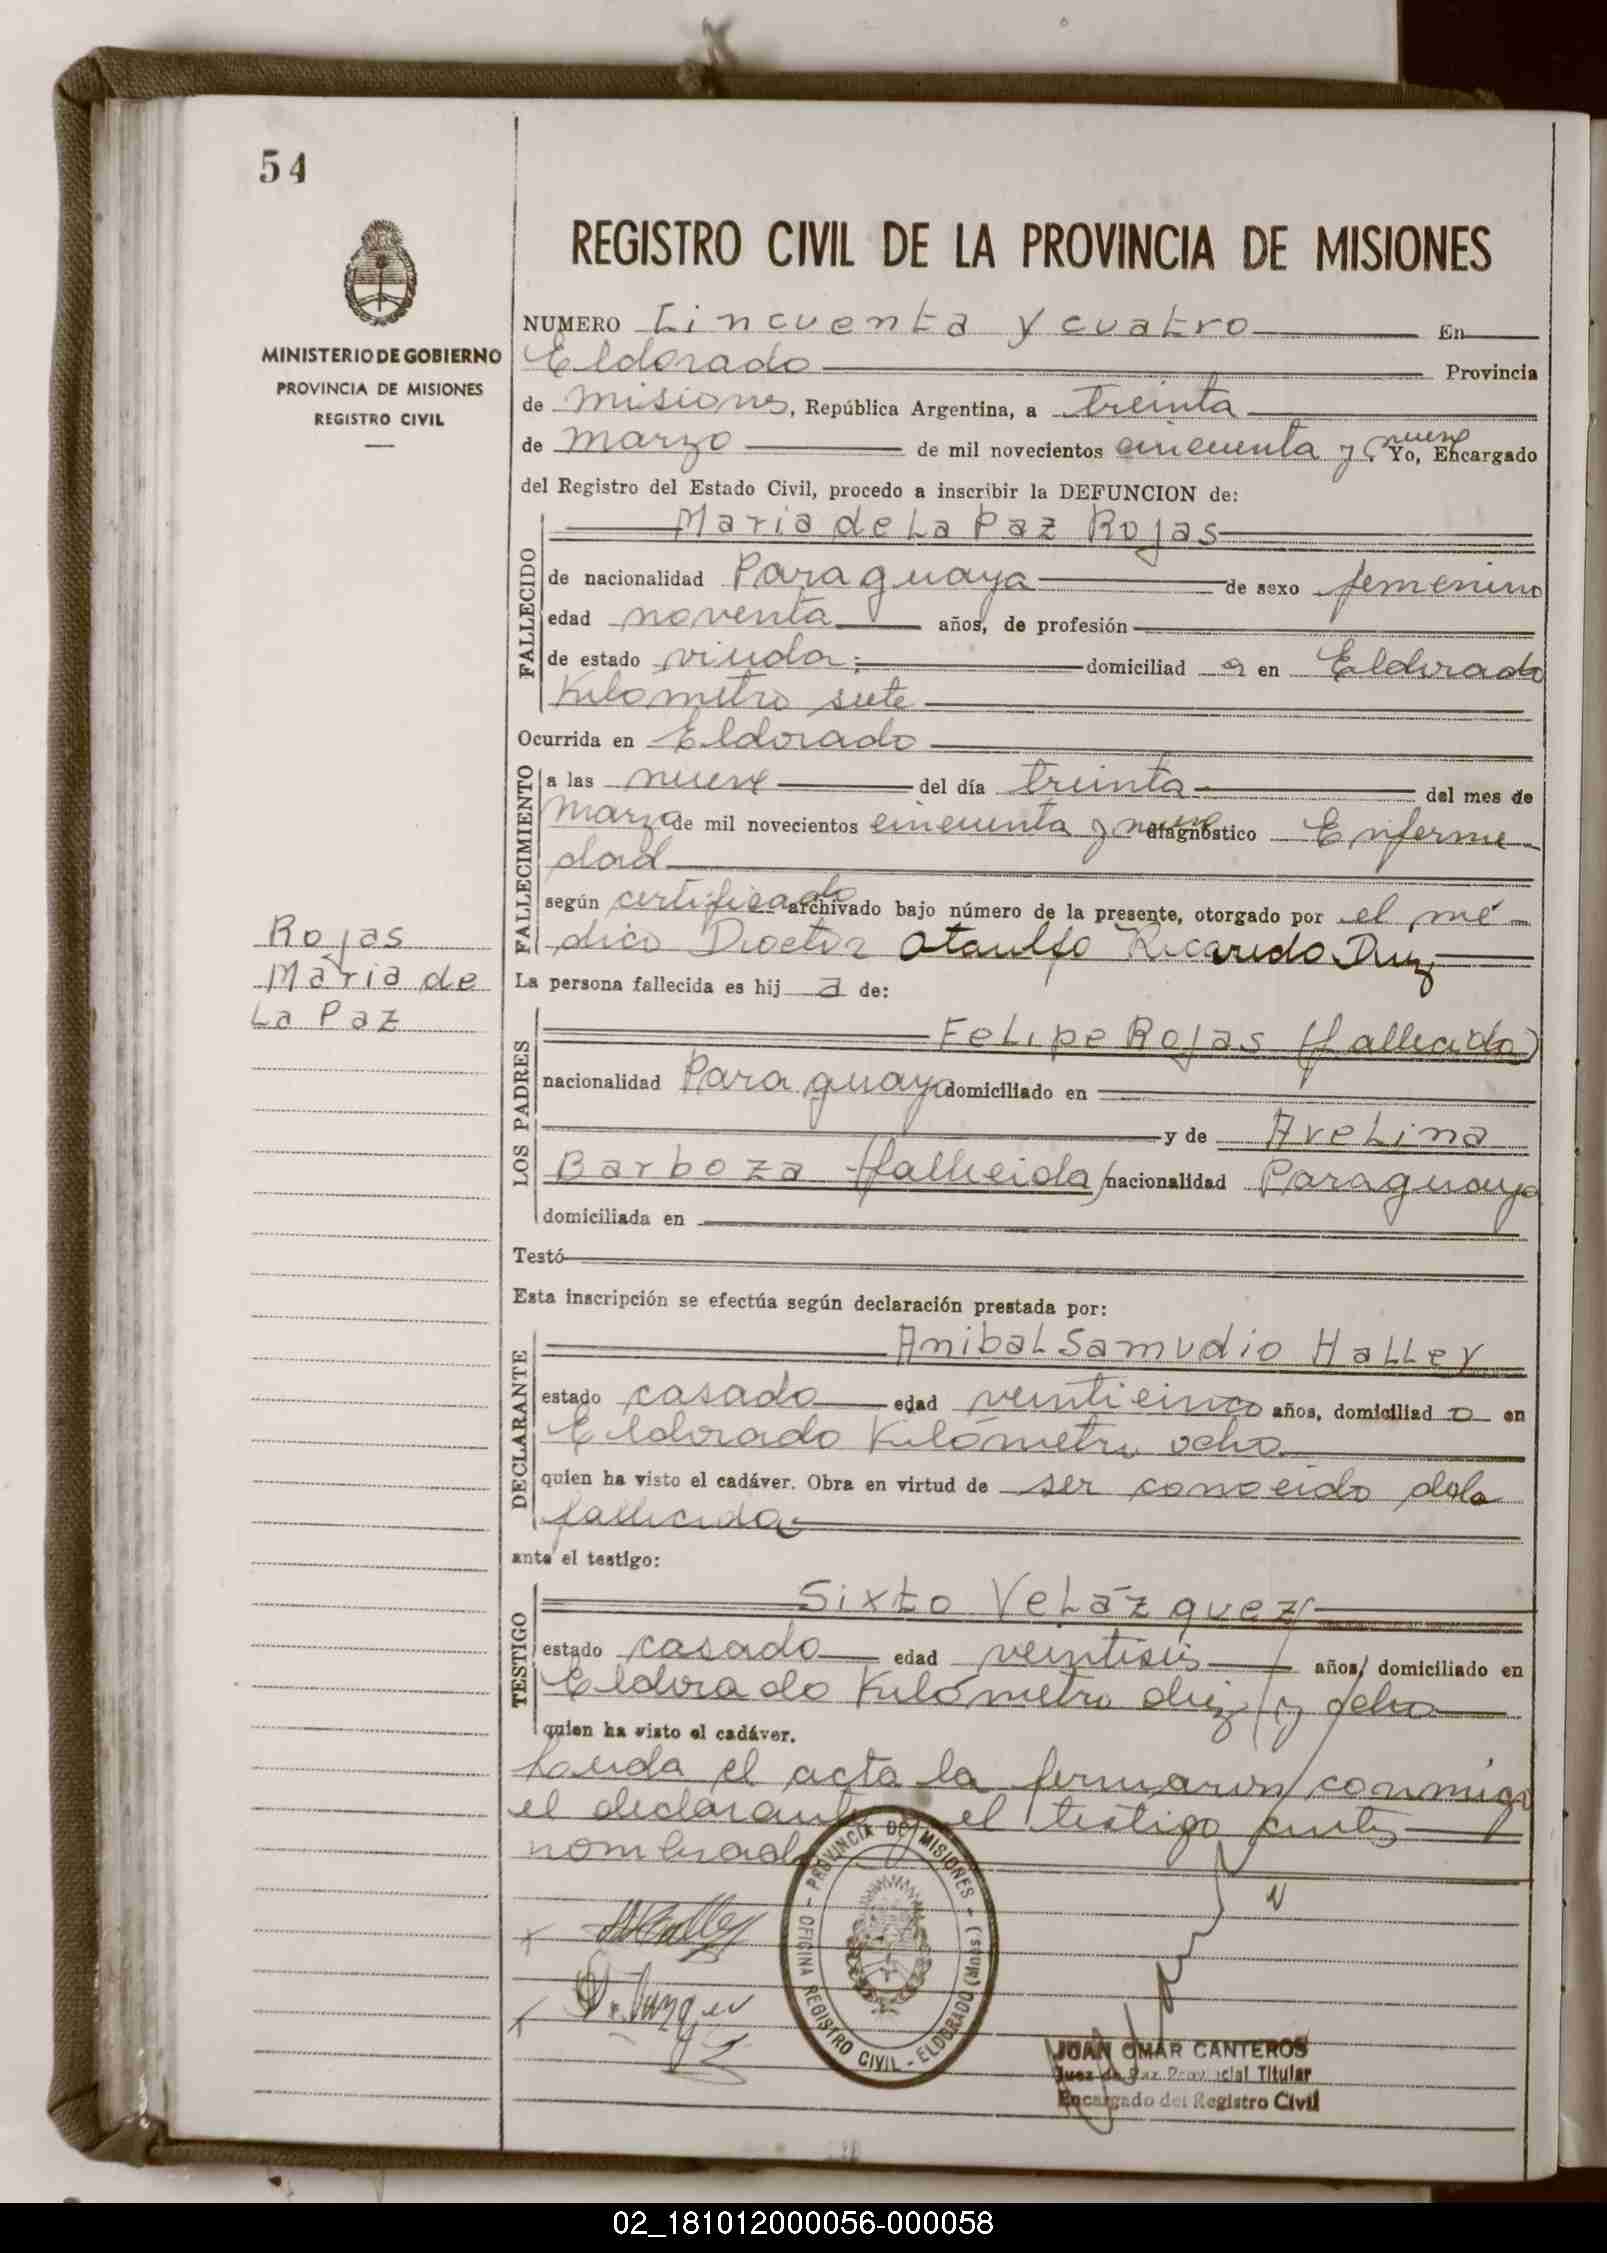 54
MINISTERIO DE GOBIERNO
PROVINCIA DE MISIONES
REGISTRO CIVIL
REGISTRO CIVIL DE LA PROVINCIA DE MISIONES
NUMERO Cincuenta y cuatro En
Eldorado Provincia
de Misiones, República Argentina, a treinta
de marzo de mil novecientos cincuenta y nueve Yo, Encargado
del Registro del Estado Civil, procedo a inscribir la DEFUNCION de:
Maria de La Paz Rojas
FALLECIDO
de nacionalidad Paraguaya de sexo femenino
edad noventa años, de profesión
de estado viuda; domiciliad a en Eldorado
Kilómetro siete
Ocurrida en Eldorado
FALLECIMIENTO
a las nueve del día treinta del mes de
Marzo de mil novecientos cincuenta y nueve diagnóstico Enferme
dad
según certificado archivado bajo número de la presente, otorgado por el mé
dico Doctor Ataulfo Ricardo Druz
La persona fallecida es hij a de:
Rojas
Maria de
La Paz
LOS PADRES
Felipe Rojas (fallecido)
nacionalidad Paraguaya domiciliado en
y de Avelina
Barboza (fallecida) nacionalidad Paraguaya
domiciliada en
Testó
Esta inscripción se efectúa según declaración prestada por:
DECLARANTE
Anibal Samudio Halley
estado casado edad veinticinco años, domiciliad o en
Eldorado Kilómetro ocho
quien ha visto el cadáver. Obra en virtud de ser conocido de la
fallecida
ante el testigo:
TESTIGO
Sixto Velázquez
estado casado edad veintiseis años, domiciliado en
Eldorado Kilómetro diez y ocho
quien ha visto el cadáver.
Leida el acta la firmaron conmigo
el declarante y el testigo antes
nombrado
PROVINCIA DE MISIONES
OFICINA REGISTRO CIVIL - ELDORADO (Mnes.)
JUAN OMAR CANTEROS
Juez de Paz Provincial Titular
Encargado del Registro Civil
02_181012000056-000058